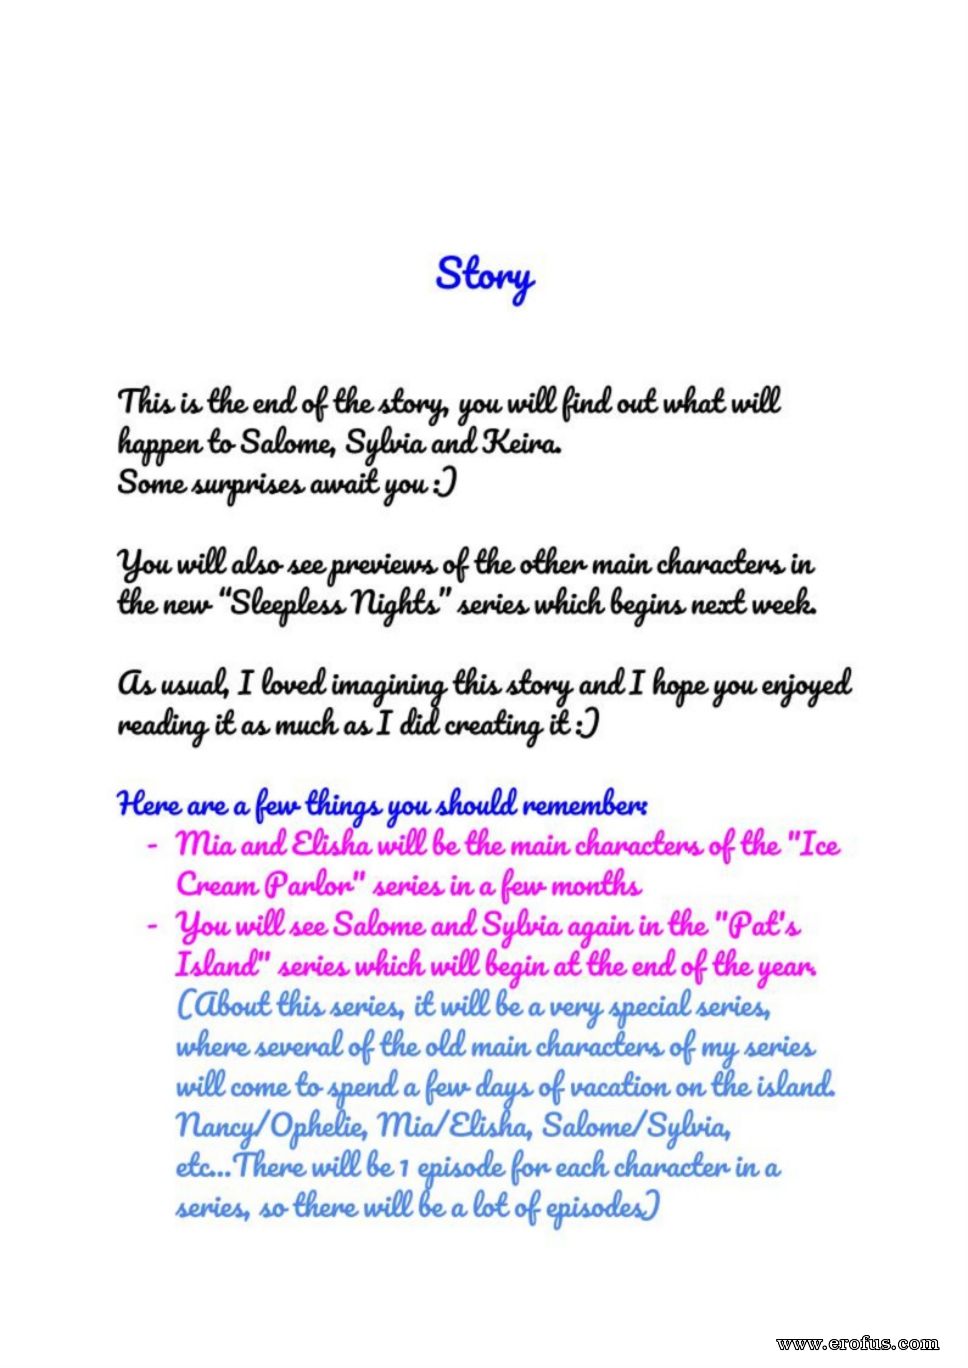 Story
This is the end of the story, you will find out what will
happen to Salome, Sylvia and Keira.
Some surprises await you :)
You will also see previews of the other main characters in
the new “Sleepless Nights” series which begins next week.
As usual, I loved imagining this story and I hope you enjoyed
reading it as much as I did creating it :)
Here are a few things you should remember:
- Mia and Elisha will be the main characters of the "Ice
Cream Parlor" series in a few months
- You will see Salome and Sylvia again in the "Pat's
Island" series which will begin at the end of the year.
(About this series, it will be a very special series,
where several of the old main characters of my series
will come to spend a few days of vacation on the island.
Nancy/Ophelie, Mia/Elisha, Salome/Sylvia,
etc...There will be 1 episode for each character in a
series, so there will be a lot of episodes)
www.erofus.com